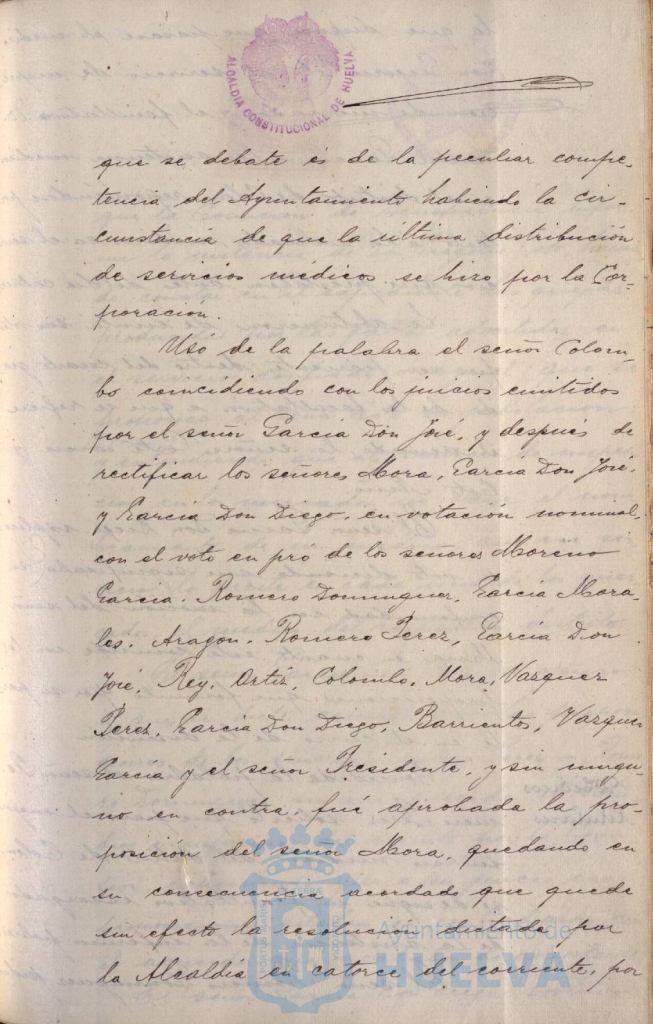 ALCALDIA CONSTITUCIONAL DE HUELVA
que se debate és de la peculiar compe-
tencia del Ayuntamiento habiendo la cir-
cunstancia de que la última distribución
de servicios médicos se hizo por la Cor-
poración.
Usó de la palabra el señor Colom-
bo coincidiendo con los juicios emitidos
por el señor García Don José, y después de
rectificar los señores Mora, García Don José,
y García Don Diego, en votación nominal,
con el voto en pró de los señores Moreno
García. Romero Dominguez, García Mora-
les. Aragon. Romero Perez, García Don
José, Rey, Ortíz, Colombo, Mora, Vazquez
Perez, García Don Diego, Barrientos, Vazquez
García y el señor Presidente, y sin ningu-
no en contra, fué aprobada la pro-
posición del señor Mora, quedando en
su consecuencia acordado que quede
sin efecto la resolución dictada por
la Alcaldía en catorce del corriente, por
Ayuntamiento de
HUELVA